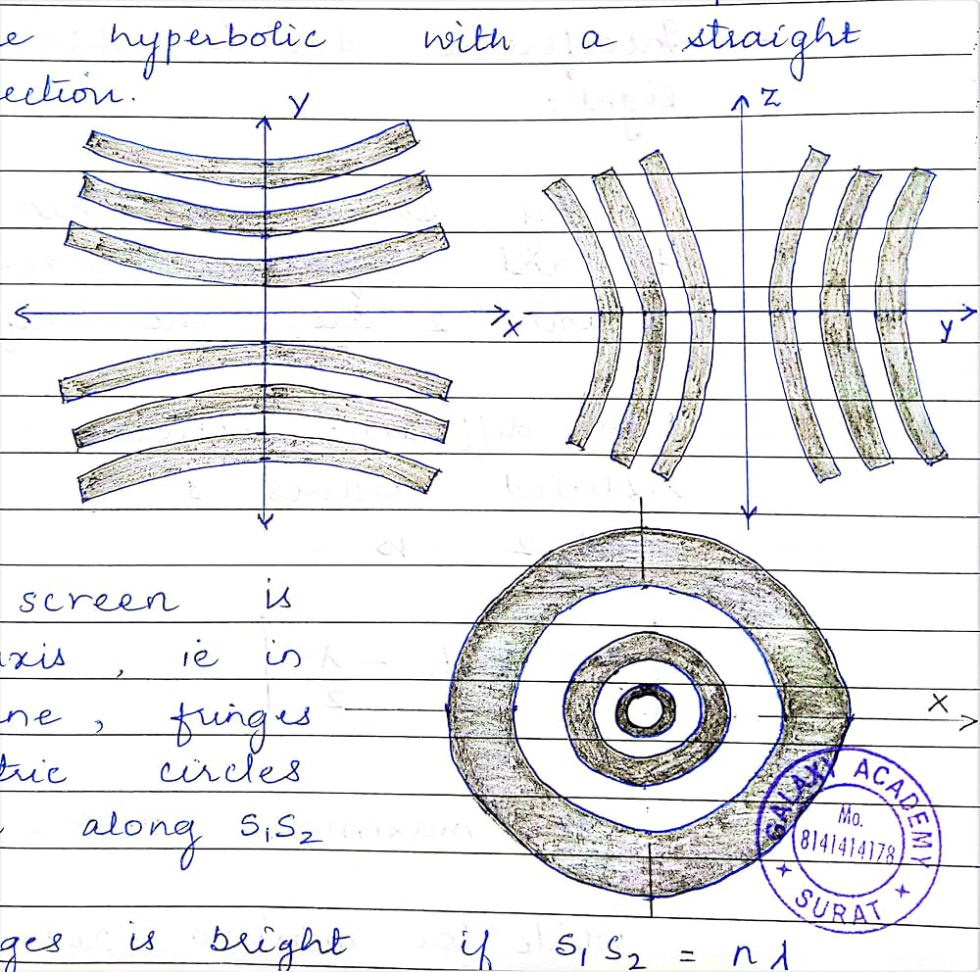 hyperbolic with a straight
ection.
Y
X
Z
y
screen is
axis, ie in
ne, fringes
tric circles
along S₁S₂
X
GALAXY ACADEMY
Mo.
8141414178
SURAT
ges is bright if S₁S₂ = nλ